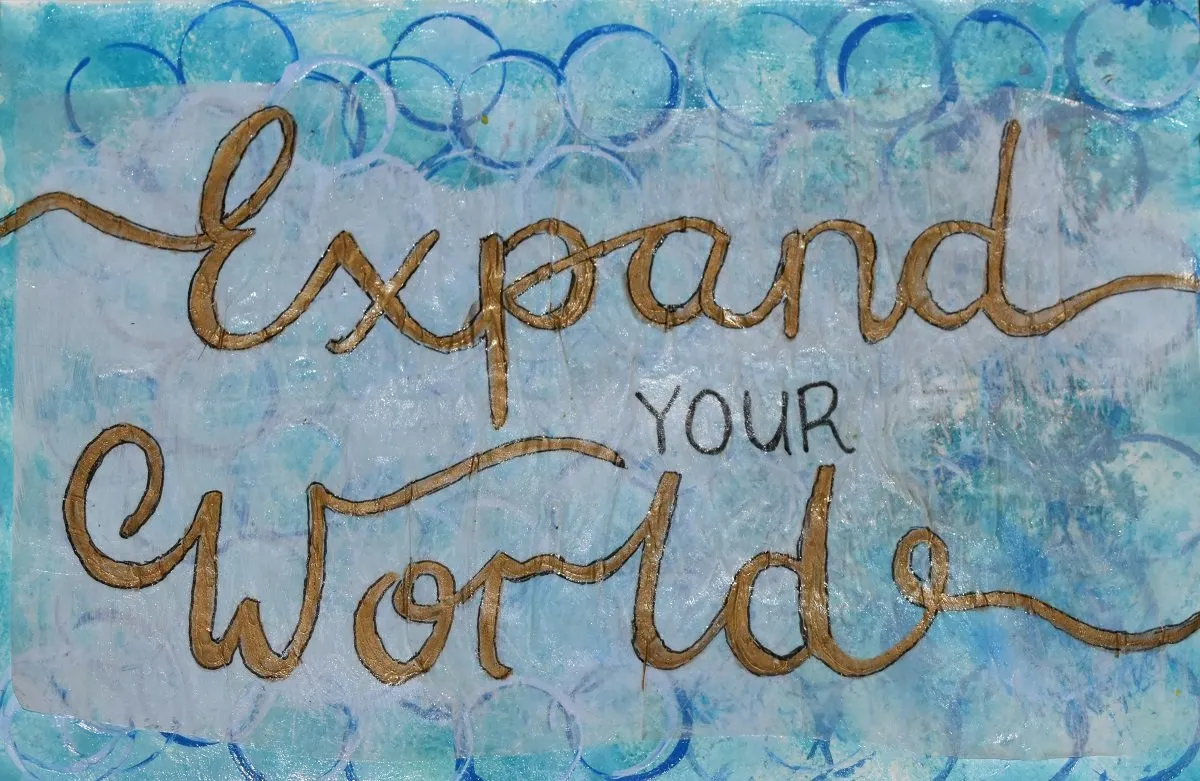 Expand
YOUR
World